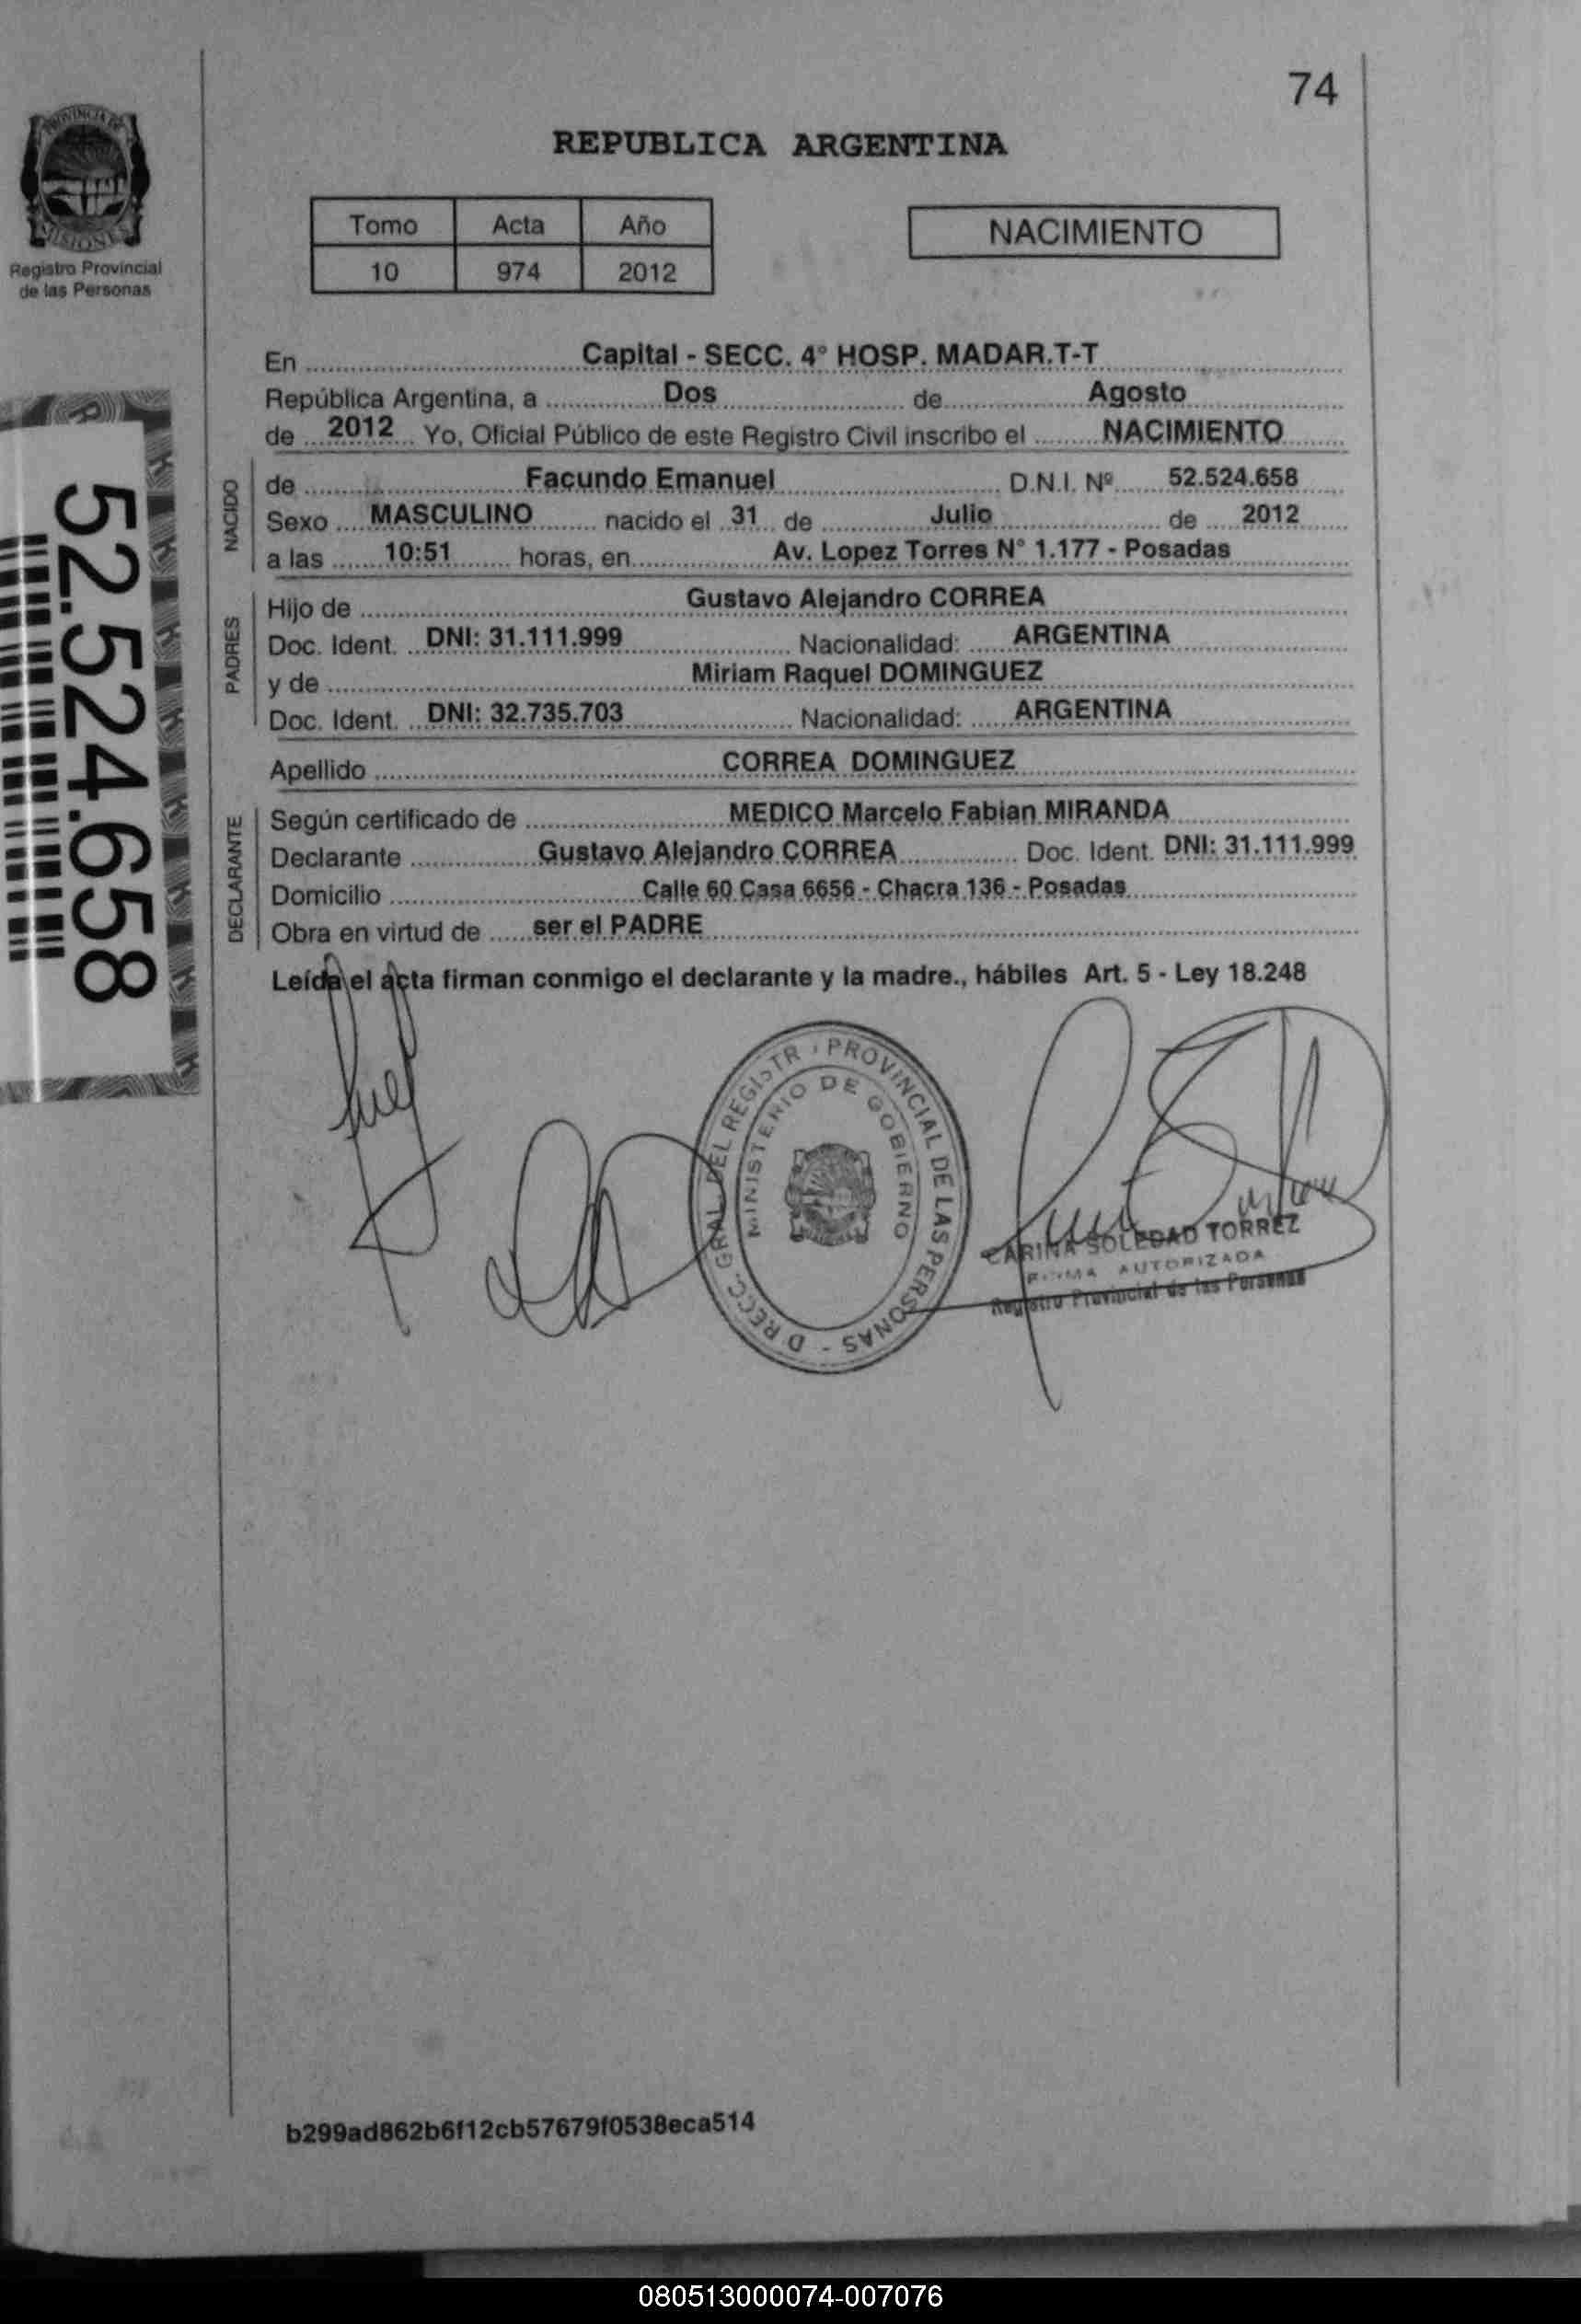 74
PROVINCIA DE
MISIONES
Registro Provincial
de las Personas
REPUBLICA ARGENTINA
Tomo Acta Año
10 974 2012
NACIMIENTO
En Capital - SECC. 4° HOSP. MADAR.T-T
República Argentina, a Dos de Agosto
de 2012 Yo, Oficial Público de este Registro Civil inscribo el NACIMIENTO
NACIDO
de Facundo Emanuel D.N.I. Nº 52.524.658
Sexo MASCULINO nacido el 31 de Julio de 2012
a las 10:51 horas, en Av. Lopez Torres N° 1.177 - Posadas
PADRES
Hijo de Gustavo Alejandro CORREA
Doc. Ident. DNI: 31.111.999 Nacionalidad: ARGENTINA
y de Miriam Raquel DOMINGUEZ
Doc. Ident. DNI: 32.735.703 Nacionalidad: ARGENTINA
Apellido CORREA DOMINGUEZ
DECLARANTE
Según certificado de MEDICO Marcelo Fabian MIRANDA
Declarante Gustavo Alejandro CORREA Doc. Ident. DNI: 31.111.999
Domicilio Calle 60 Casa 6656 - Chacra 136 - Posadas
Obra en virtud de ser el PADRE
Leída el acta firman conmigo el declarante y la madre., hábiles Art. 5 - Ley 18.248
52.524.658
DIRECC. GRAL. DEL REGISTR PROVINCIAL DE LAS PERSONAS -
MINISTERIO DE GOBIERNO
CARINA SOLEDAD TORREZ
FIRMA AUTORIZADA
Registro Provincial de las Personas
b299ad862b6f12cb57679f0538eca514
080513000074-007076